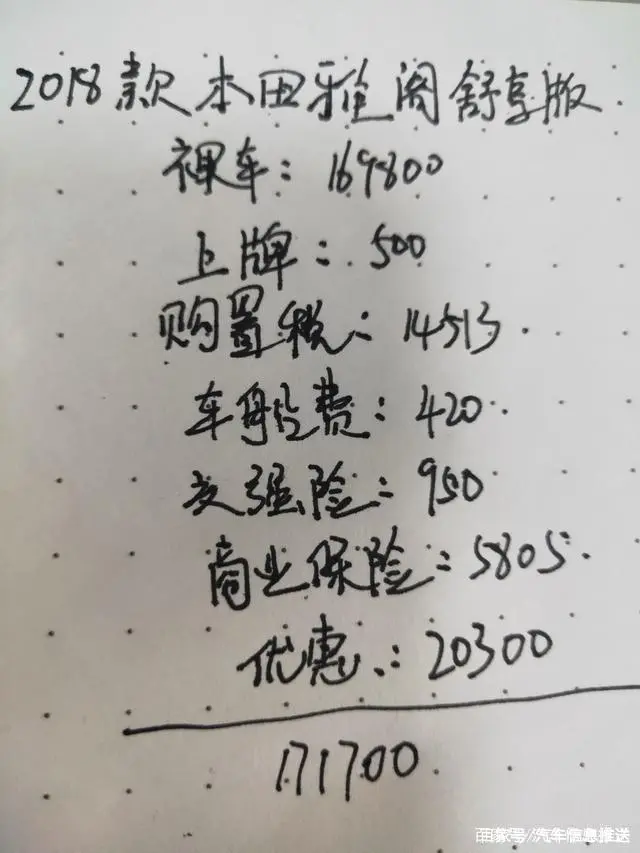 2018款本田雅阁舒享版
裸车：169800
上牌：500
购置税：14513
车船费：420
交强险：950
商业保险：5805
优惠：20300
171700
百家号/汽车信息推送